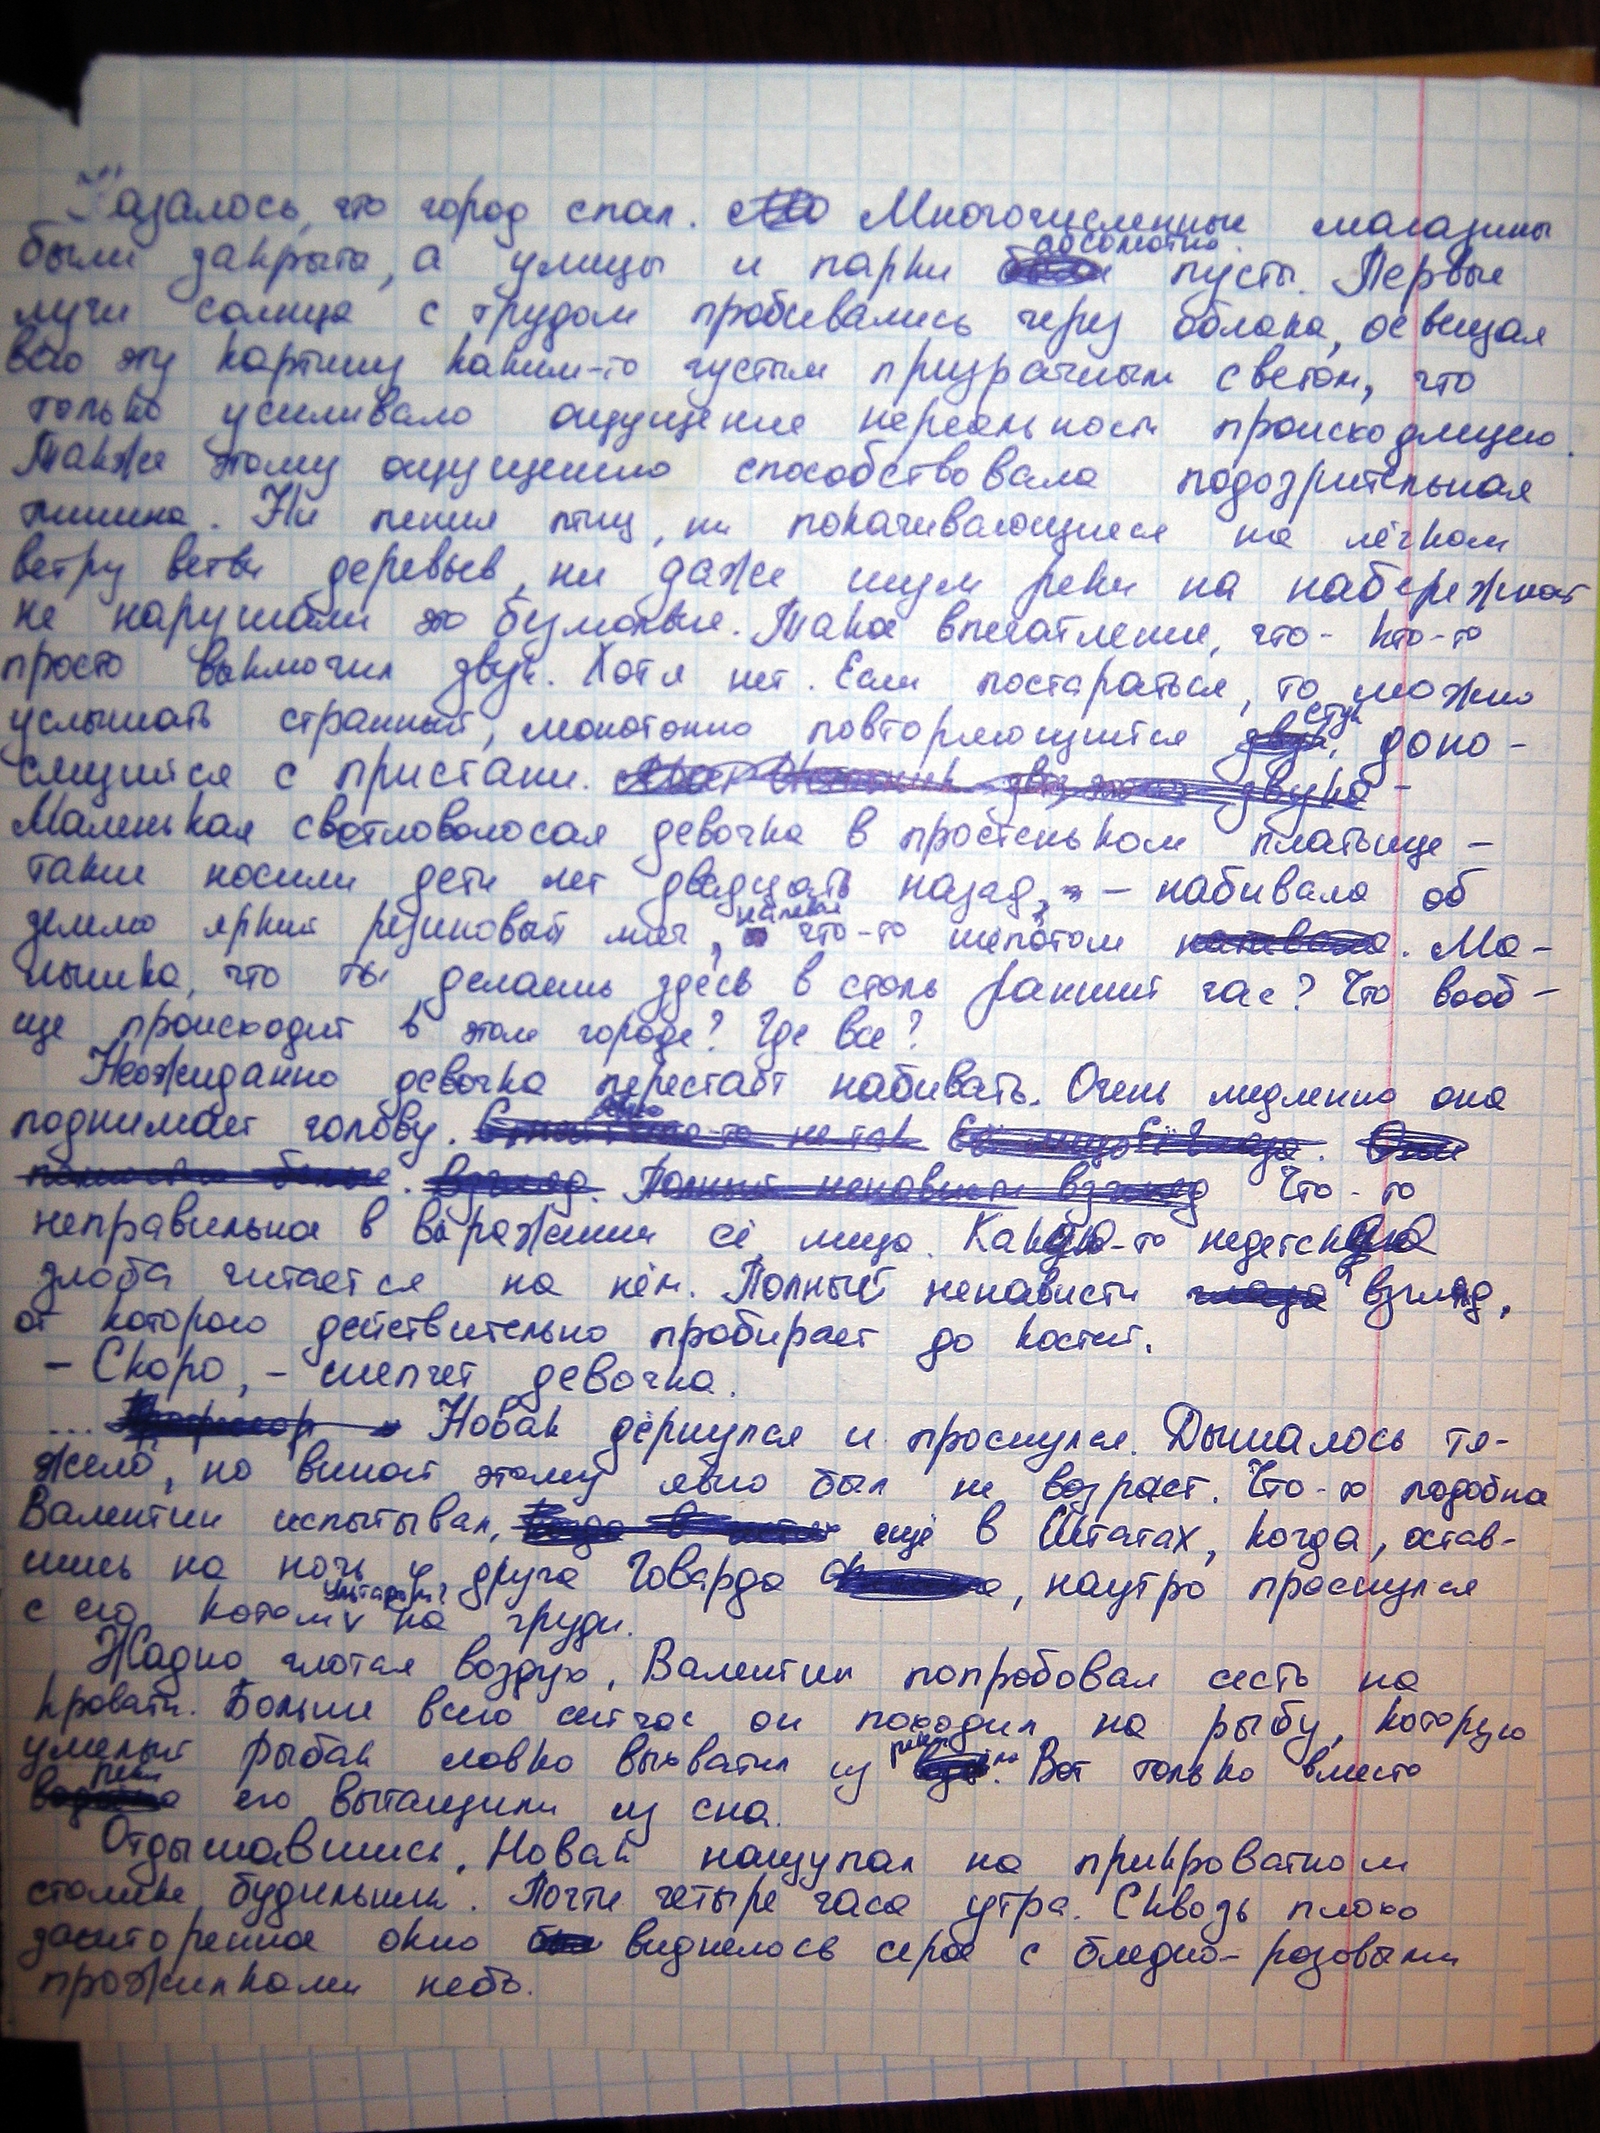 Казалось, что город спал. Многочисленные магазины
были закрыты, а улицы и парки абсолютно пусты. Первые
лучи солнца с трудом пробивались через облака, освещая
всю эту картину каким-то густым призрачным светом, что
только усиливало ощущение нереальности происходящего.
Также этому ощущению способствовала подозрительная
тишина. Ни пения птиц, ни покачивающиеся на лёгком
ветру ветви деревьев, ни даже шум реки на набережной
не нарушали это безмолвие. Такое впечатление, что кто-то
просто выключил звук. Хотя нет. Если постараться, то можно
услышать странный, монотонно повторяющийся стук, доно-
сящийся с пристани.
Маленькая светловолосая девочка в простеньком платьице -
такие носили дети лет двадцать назад, - набивала об
землю яркий резиновый мяч, напевая что-то шёпотом. Ма-
лышка, что ты делаешь здесь в столь ранний час? Что вооб-
ще происходит в этом городе? Где все?
Неожиданно девочка перестаёт набивать. Очень медленно она
поднимает голову.
Что-то
неправильное в выражении её лица. Какая-то недетская
злоба читается на нём. Полный ненависти взгляд,
от которого действительно пробирает до костей.
- Скоро, - шепчет девочка.
... Новак дёрнулся и проснулся. Дышалось тя-
жело, но виной этому явно был не возраст. Что-то подобное
Валентин испытывал, ещё в Штатах, когда, остав-
шись на ночь у друга Говарда, наутро проснулся
с его котом на груди.
Жадно глотая воздух, Валентин попробовал сесть на
кровати. Больше всего сейчас он походил на рыбу, которую
умелый рыбак ловко выхватил из реки. Вот только вместо
реки его вытащили из сна.
Отдышавшись, Новак нащупал на прикроватном
столике будильник. Почти четыре часа утра. Сквозь плохо
зашторенное окно виднелось серое с бледно-розовыми
прожилками небо.